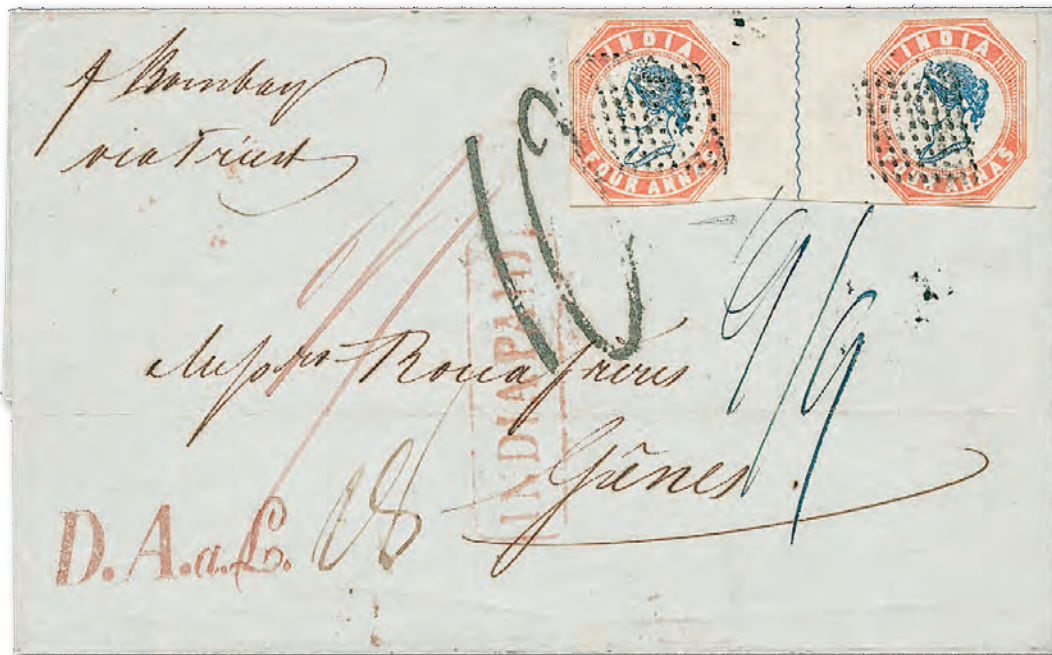 INDIA
FOUR ANNAS
INDIA
FOUR ANNAS
p Bombay
via Triest
INDIA PAID
9/9
Messrs Rocca frères
Gênes.
D. A. a. L.